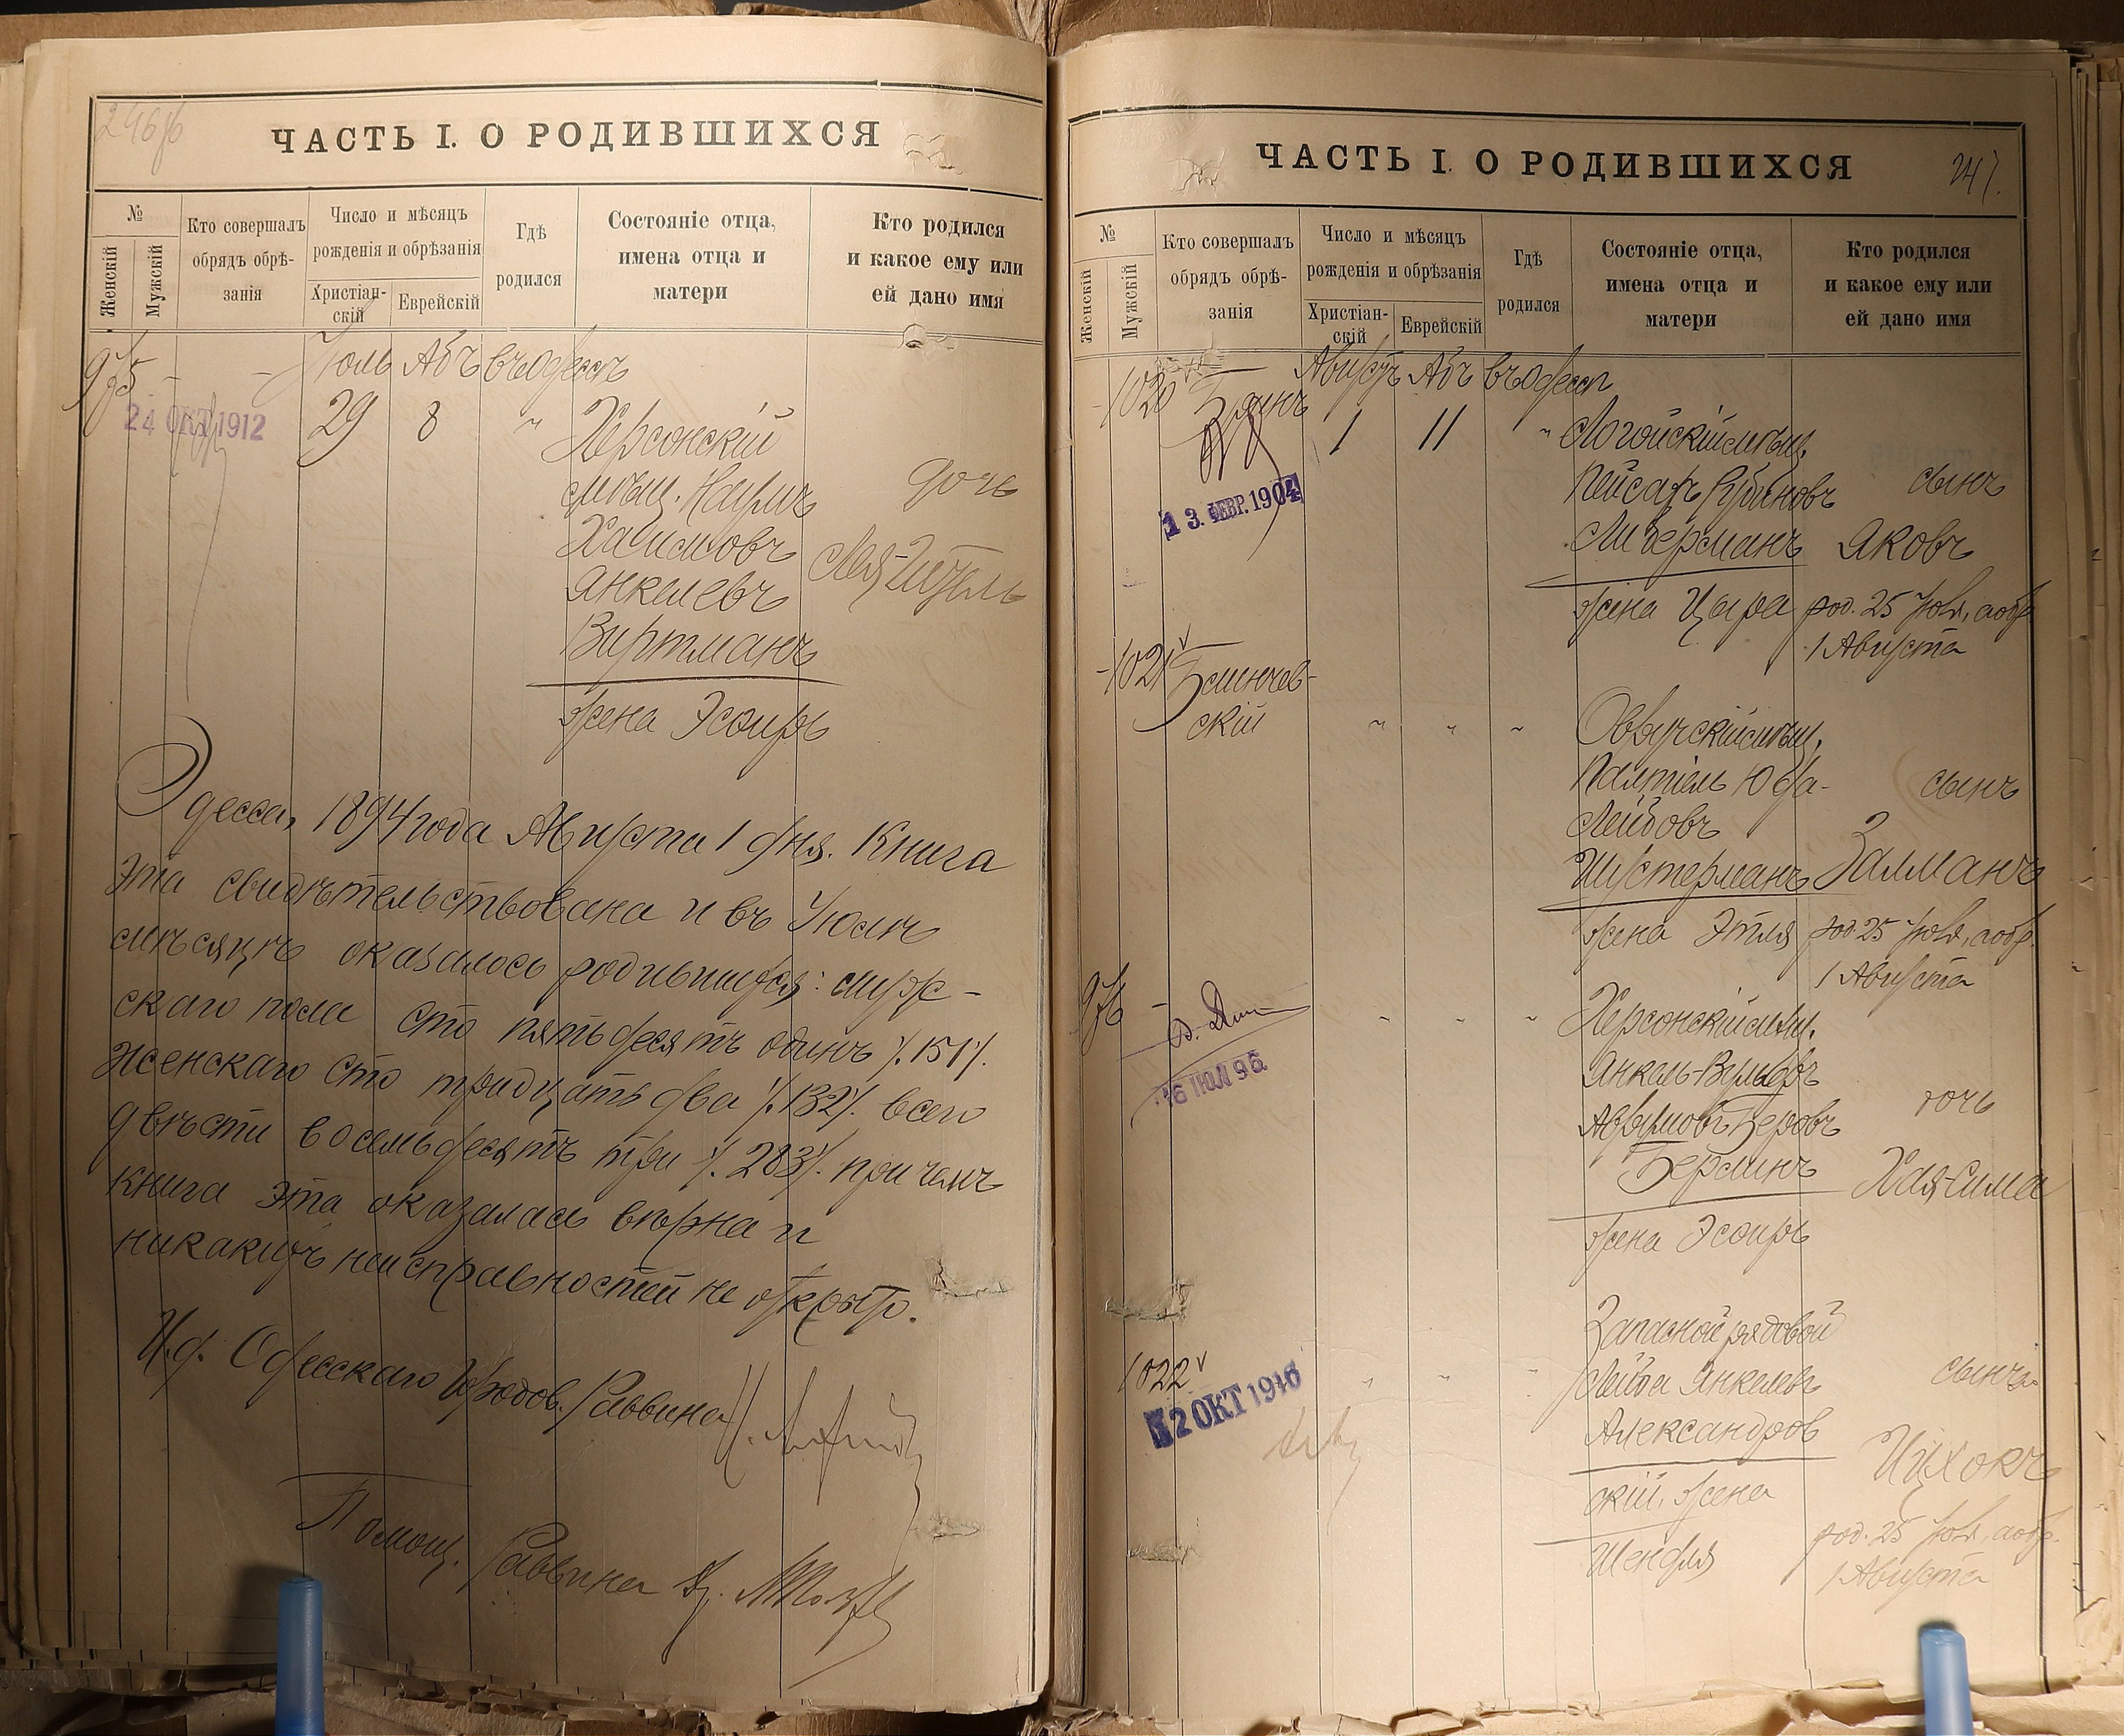 ЧАСТЬ I. О РОДИВШИХСЯ
№
Женскій
Мужскій
Кто совершалъ
обрядъ обрѣ-
занія
Число и мѣсяцъ
рожденія и обрѣзанія
Христіан-
скій
Еврейскій
Гдѣ
родился
Состояніе отца,
имена отца и
матери
Кто родился
и какое ему или
ей дано имя
975 - - Іюль Абъ въ Одессѣ
24 ОКТ 1912
29 8 "
Херсонскій
мѣщ. Наумъ
Хаимовъ
Янкелевъ
Виртманъ
жена Эсѳирь
дочь
Лея-
Одесса, 1894 года Августа 1 дня. Книга
эта свидѣтельствована и въ Іюлѣ
мѣсяцѣ оказалось родившихся: муж-
скаго пола сто пятьдесятъ одинъ /.151/.
женскаго сто тридцать два /.132/. всего
двѣсти восемьдесятъ три /.283/. при чемъ
книга эта оказалась вѣрна и
никакихъ неисправностей не открыто.
И.д. Одесскаго Городов. Раввина
Помощ. Раввина
ЧАСТЬ I. О РОДИВШИХСЯ
247.
№
Женскій
Мужскій
Кто совершалъ
обрядъ обрѣ-
занія
Число и мѣсяцъ
рожденія и обрѣзанія
Христіан-
скій
Еврейскій
Гдѣ
родился
Состояніе отца,
имена отца и
матери
Кто родился
и какое ему или
ей дано имя
-1020 Августъ Абъ въ Одессѣ
1 11 "
13. ФЕВР. 1904
Логойскій мѣщ.
Пейсахъ Рубиновъ
Либерманъ
жена Цыра
сынъ
Яковъ
род. 25 Іюля, а обр.
1 Августа
-1021 Бминчев-
скій " " "
Овручскій мѣщ.
Палтіель Юда-
Лейбовъ
Шустерманъ
жена Этля
сынъ
Залманъ
род. 25 Іюля, а обр.
1 Августа
976 - " " "
16 ІЮЛ 96
Херсонскій мѣщ.
Янкель-Вульфъ
Абрумовъ-Беровъ
Берлинъ
жена Эсѳирь
дочь
Хая-Сима
1022 " " "
2 ОКТ 1916
Запасной рядовой
Лейба Янкелевъ
Александров
скій, жена
Шендля
сынъ
Ицхокъ
род. 25 Іюля, а обр.
1 Августа